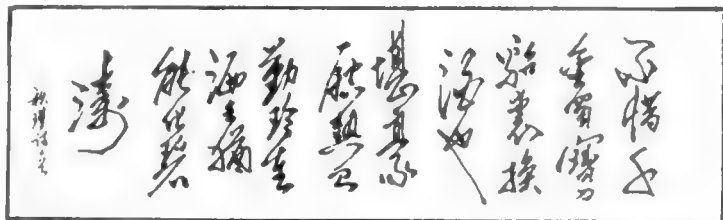 不惜千
金買寶刀
貂裘換
酒也
堪豪
一腔熱血
勤珍重
灑去猶
能化碧
濤
秋瑾詩